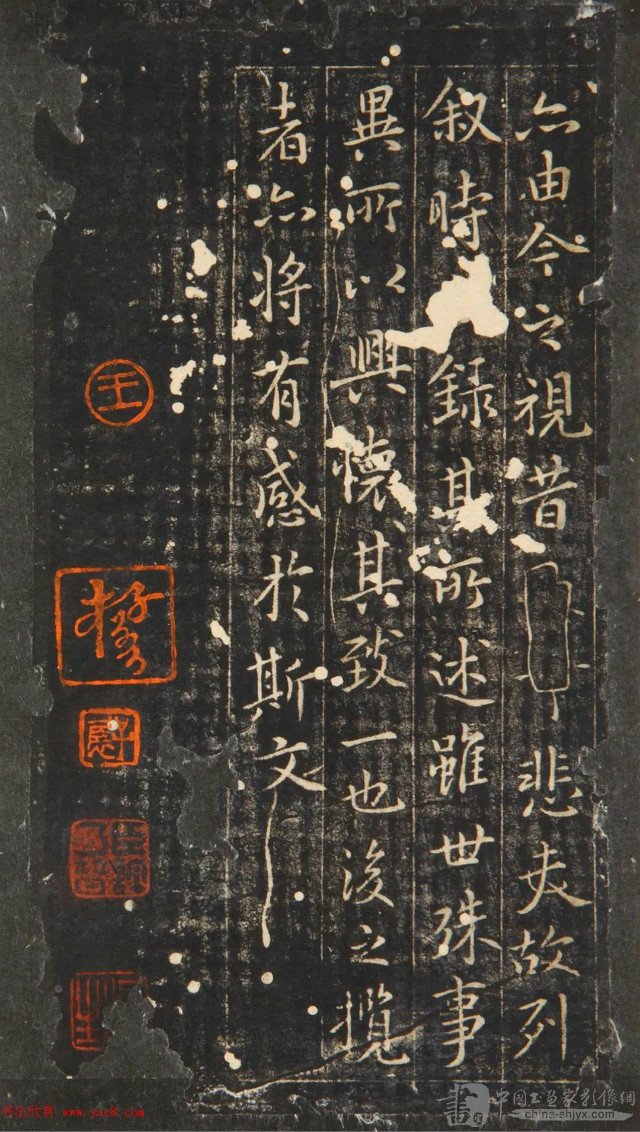 亦由今之視昔悲夫故列
叙時錄其所述雖世殊事
異所以興懷其致一也後之攬
者亦將有感於斯文
王
書法欣賞 www.yac8.com
書 中国书画家影像網
china-shjyx.com